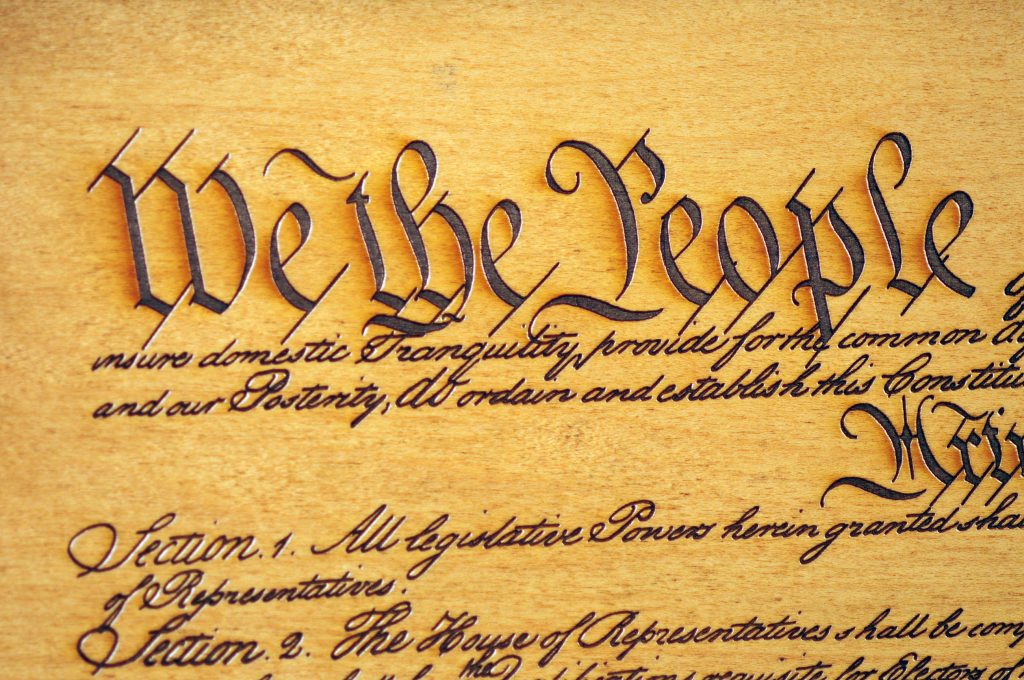 We the People
insure domestic Tranquility, provide for the common
and our Posterity, do ordain and establish this Constitu
Artic
Section. 1. All legislative Powers herein granted sha
of Representatives.
Section. 2. The House of Representatives shall be com
the Qualifications requisite for Electors of